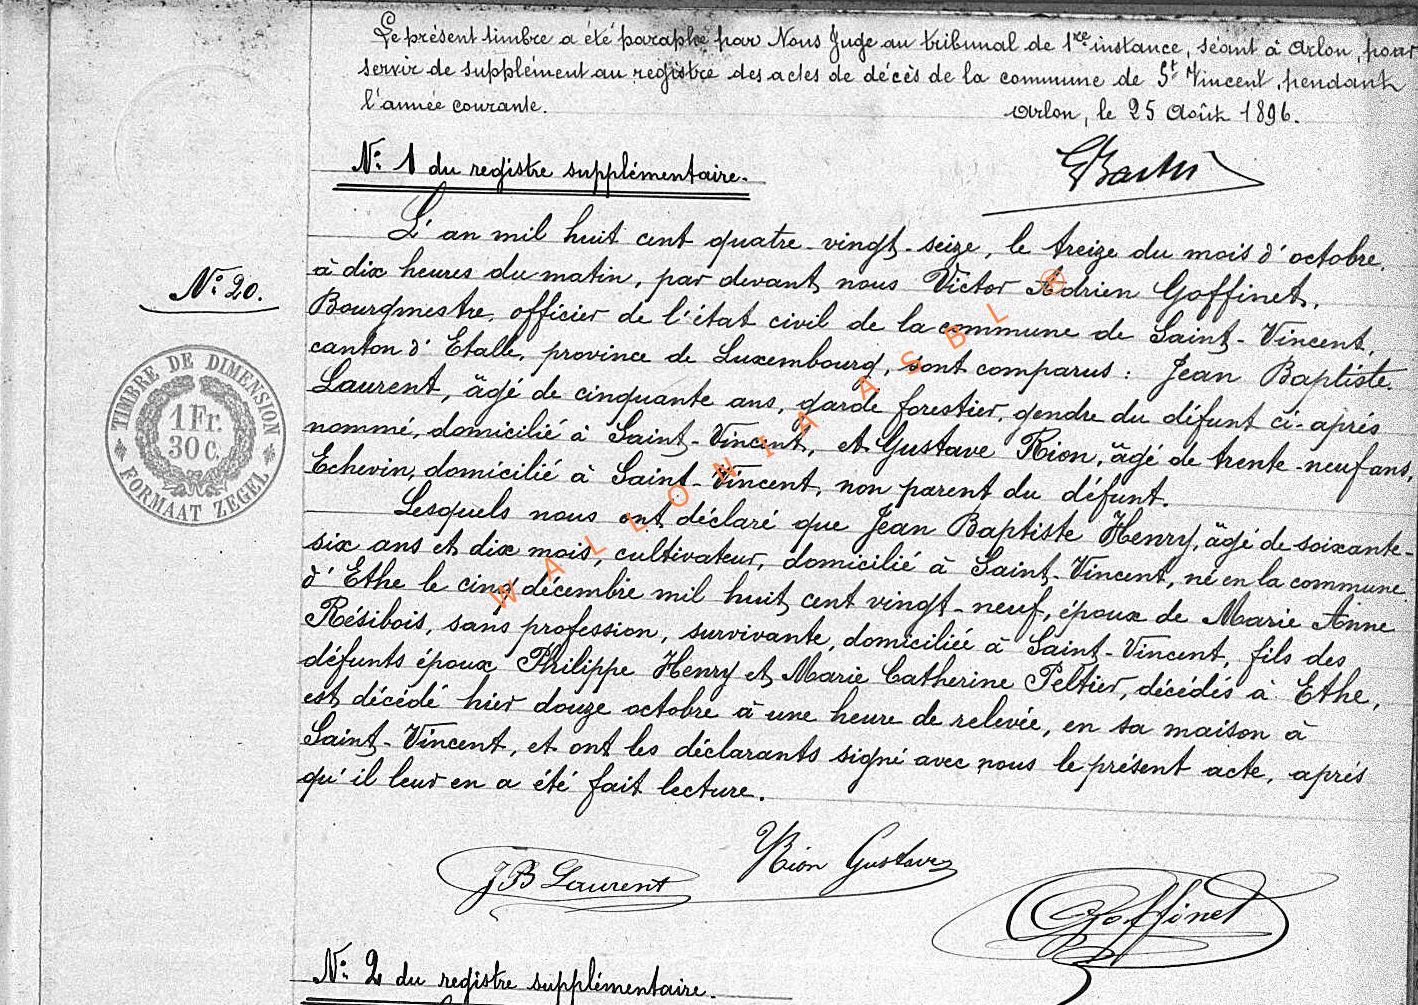 Le présent timbre a été paraphé par Nous Juge au tribunal de 1re instance, séant à Arlon, pour
servir de supplément au registre des actes de décès de la commune de St Vincent, pendant
l'année courante.
Arlon, le 25 Août 1896.
N° 1 du registre supplémentaire.
L'an mil huit cent quatre-vingt-seize, le treize du mois d'octobre,
à dix heures du matin, par devant nous Victor Adrien Goffinet,
N° 20.
Bourgmestre, officier de l'état civil de la commune de Saint-Vincent,
canton d'Etalle, province de Luxembourg, sont comparus : Jean Baptiste
Laurent, âgé de cinquante ans, garde forestier, gendre du défunt ci-après
nommé, domicilié à Saint-Vincent, et Gustave Rion, âgé de trente-neuf ans,
Echevin, domicilié à Saint-Vincent, non parent du défunt.
Lesquels nous ont déclaré que Jean Baptiste Henry, âgé de soixante-
six ans et dix mois, cultivateur, domicilié à Saint-Vincent, né en la commune
d'Ethe le cinq décembre mil huit cent vingt-neuf, époux de Marie Anne
Résibois, sans profession, survivante, domiciliée à Saint-Vincent, fils des
défunts époux Philippe Henry et Marie Catherine Peltier, décédés à Ethe,
est décédé hier douze octobre à une heure de relevée, en sa maison à
Saint-Vincent, et ont les déclarants signé avec nous le présent acte, après
qu'il leur en a été fait lecture.
TIMBRE DE DIMENSION
1 Fr.
30 c.
FORMAAT ZEGEL
WALLONIA ASBL ®
JB Laurent
Rion Gustave
Goffinet
N° 2 du registre supplémentaire.